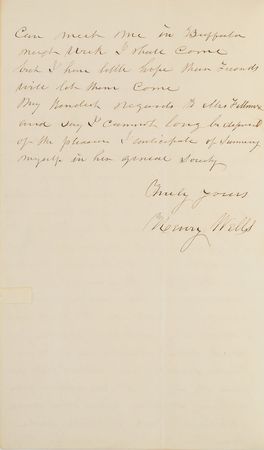 Can meet me in Buffalo
next Week I shall Come
but I have little hope their friends
will let them Come
My kindest regards to Mrs Fillmore
and say I cannot long be deprived
of the pleasure I anticipate of Sunning
myself in her genial Society
Truly yours
Henry Wells